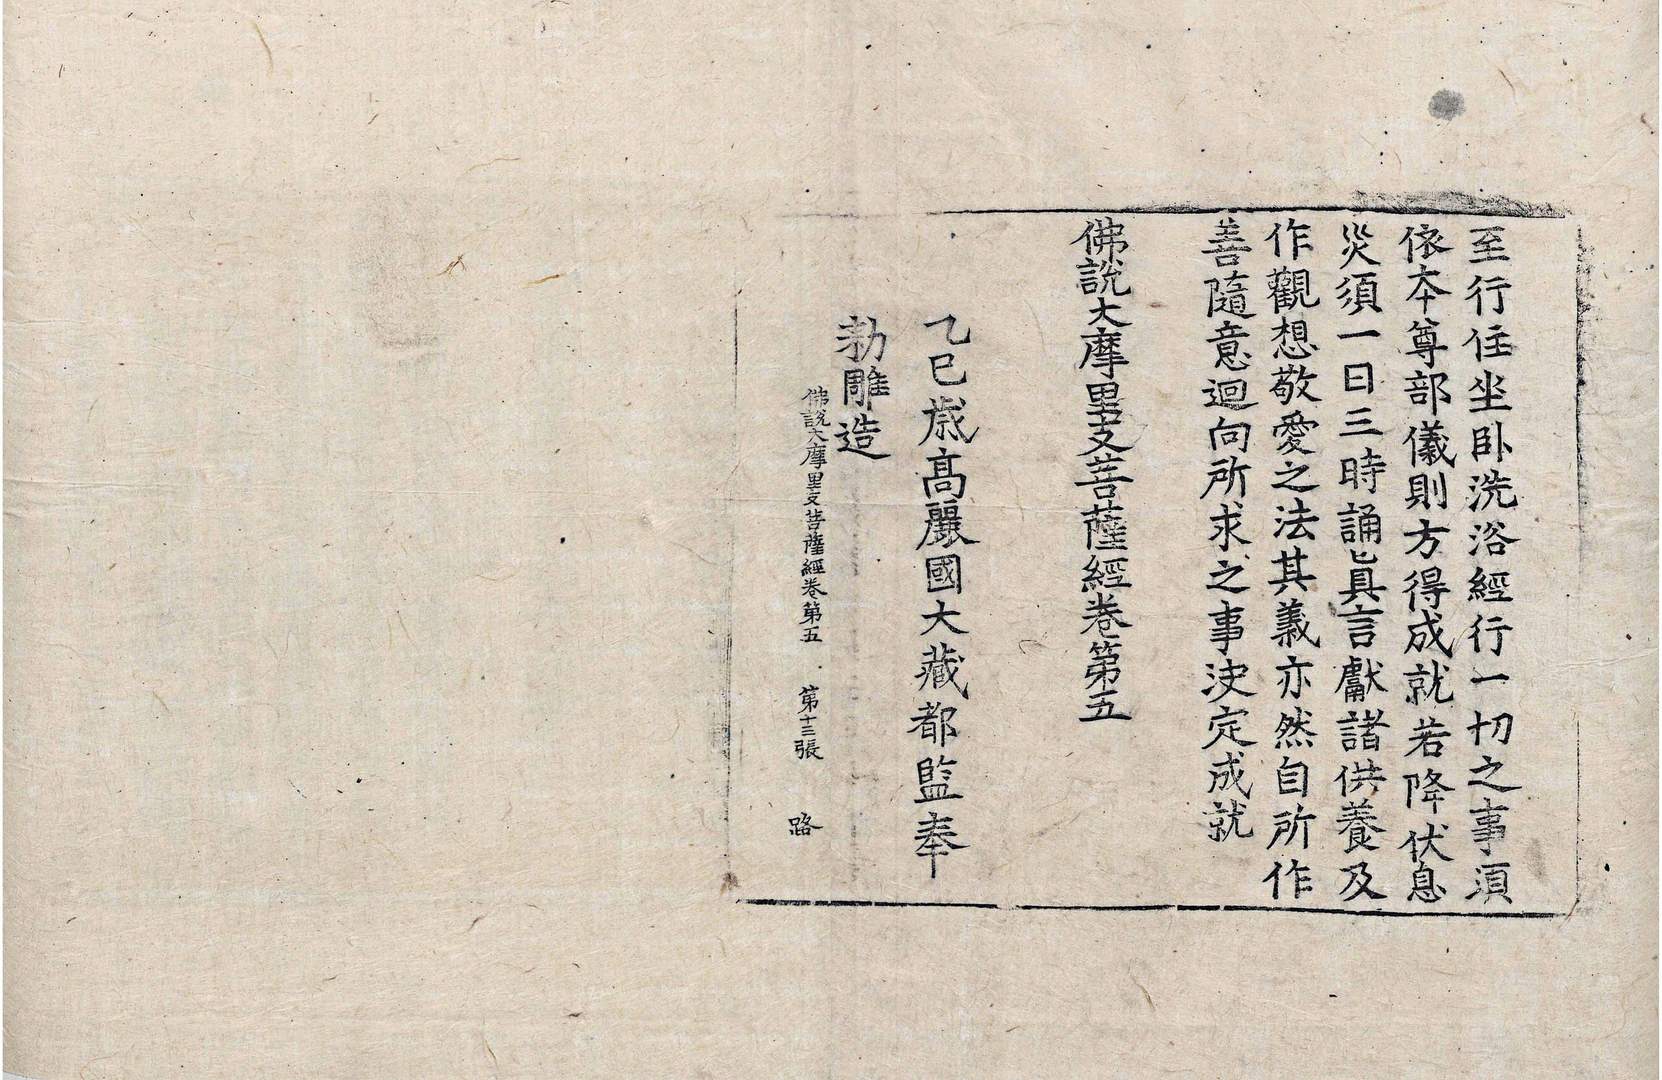 至行住坐卧洗浴經行一切之事須
依本尊部儀則方得成就若降伏息
災須一日三時誦此真言獻諸供養及
作觀想敬愛之法其義亦然自所作
善隨意迴向所求之事決定成就
佛說大摩里支菩薩經卷第五
乙巳歲高麗國大藏都監奉
勅雕造
佛說大摩里支菩薩經卷第五 第十三張 路